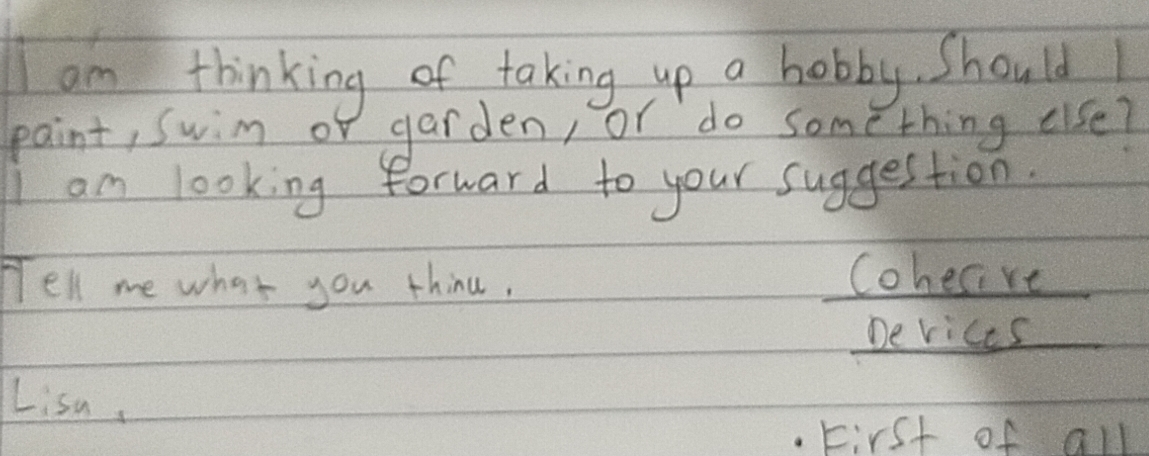 I am thinking of taking up a hobby. Should I
paint, swim or garden, or do something else?
I am looking forward to your suggestion.
Tell me what you think.
Cohesive
Devices
Lisa,
• First of all